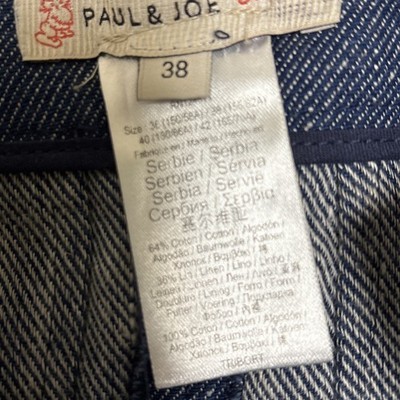 PAUL & JOE
38
Size : 36 (150/58A) / 38 (155/62A)
40 (160/66A) / 42 (165/70A)
Fabriqué en / Made in / Hecho en
Serbie / Serbia
Serbien / Sérvia
Serbia / Servië
Сербия / Σερβία
塞尔维亚
64% Coton / Cotton / Algodón /
Algodão / Baumwolle / Katoen
Хлопок / Βαμβάκι / 棉
36% Lin / Linen / Lino / Linho /
Leinen / Linnen / Лен / Λινό / 亚麻
Doublure / Lining / Forro / Forro /
Futter / Voering / Подкладка
Φόδρα /
100% Coton / Cotton / Algodón /
Algodão / Baumwolle / Katoen
Хлопок / Βαμβάκι / 棉